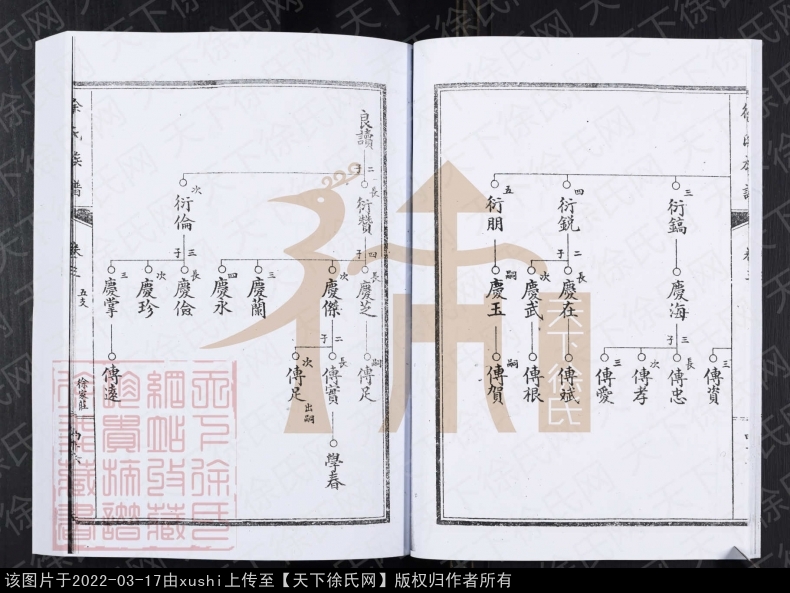 三
衍鎬
慶海
三子
長
傳忠
次
傳孝
三
傳愛
三
傳賓
四
衍銳
二子
長
慶在
傳斌
次
慶武
傳根
五
衍朋
嗣
慶玉
嗣
傳賀
良讀
二子
長
衍贊
四子
長
慶芝
嗣
傳足
次
慶傑
二子
長
傳實
學春
次
傳足
出嗣
三
慶蘭
四
慶永
次
衍倫
三子
長
慶儉
次
慶珍
三
慶掌
傳遠
徐氏族譜
卷之
五支
徐家莊
天下徐氏
该图片于2022-03-17由xushi上传至【天下徐氏网】版权归作者所有